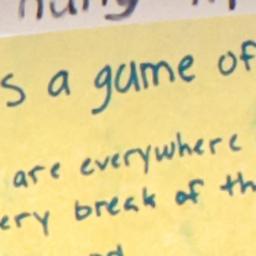 s a game of
are everywhere
ery break of th